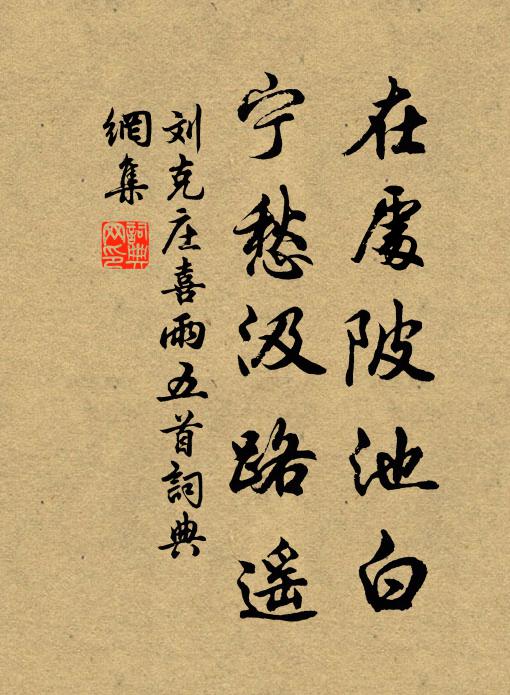 在處陂池白
宁愁汲路遥
刘克庄喜雨五首詞典
網集
詞典
网印